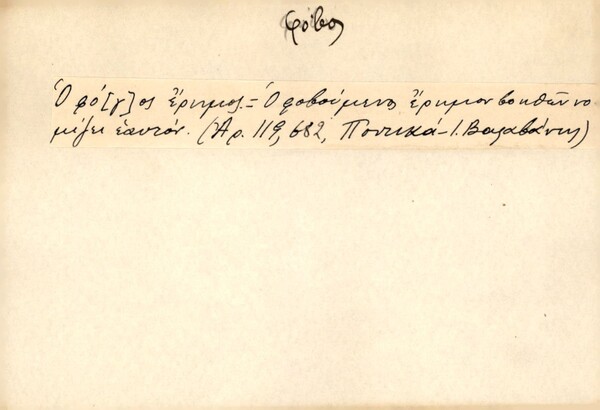 φόβος
Ὁ φό[γ]ος ἔρημος. = Ὁ φοβούμενος ἔρημον βοηθῶν νο
μίζει ἑαυτόν. (Ἀρ. 119, 682, Ποντικά - Ι. Βαλαβάνης)